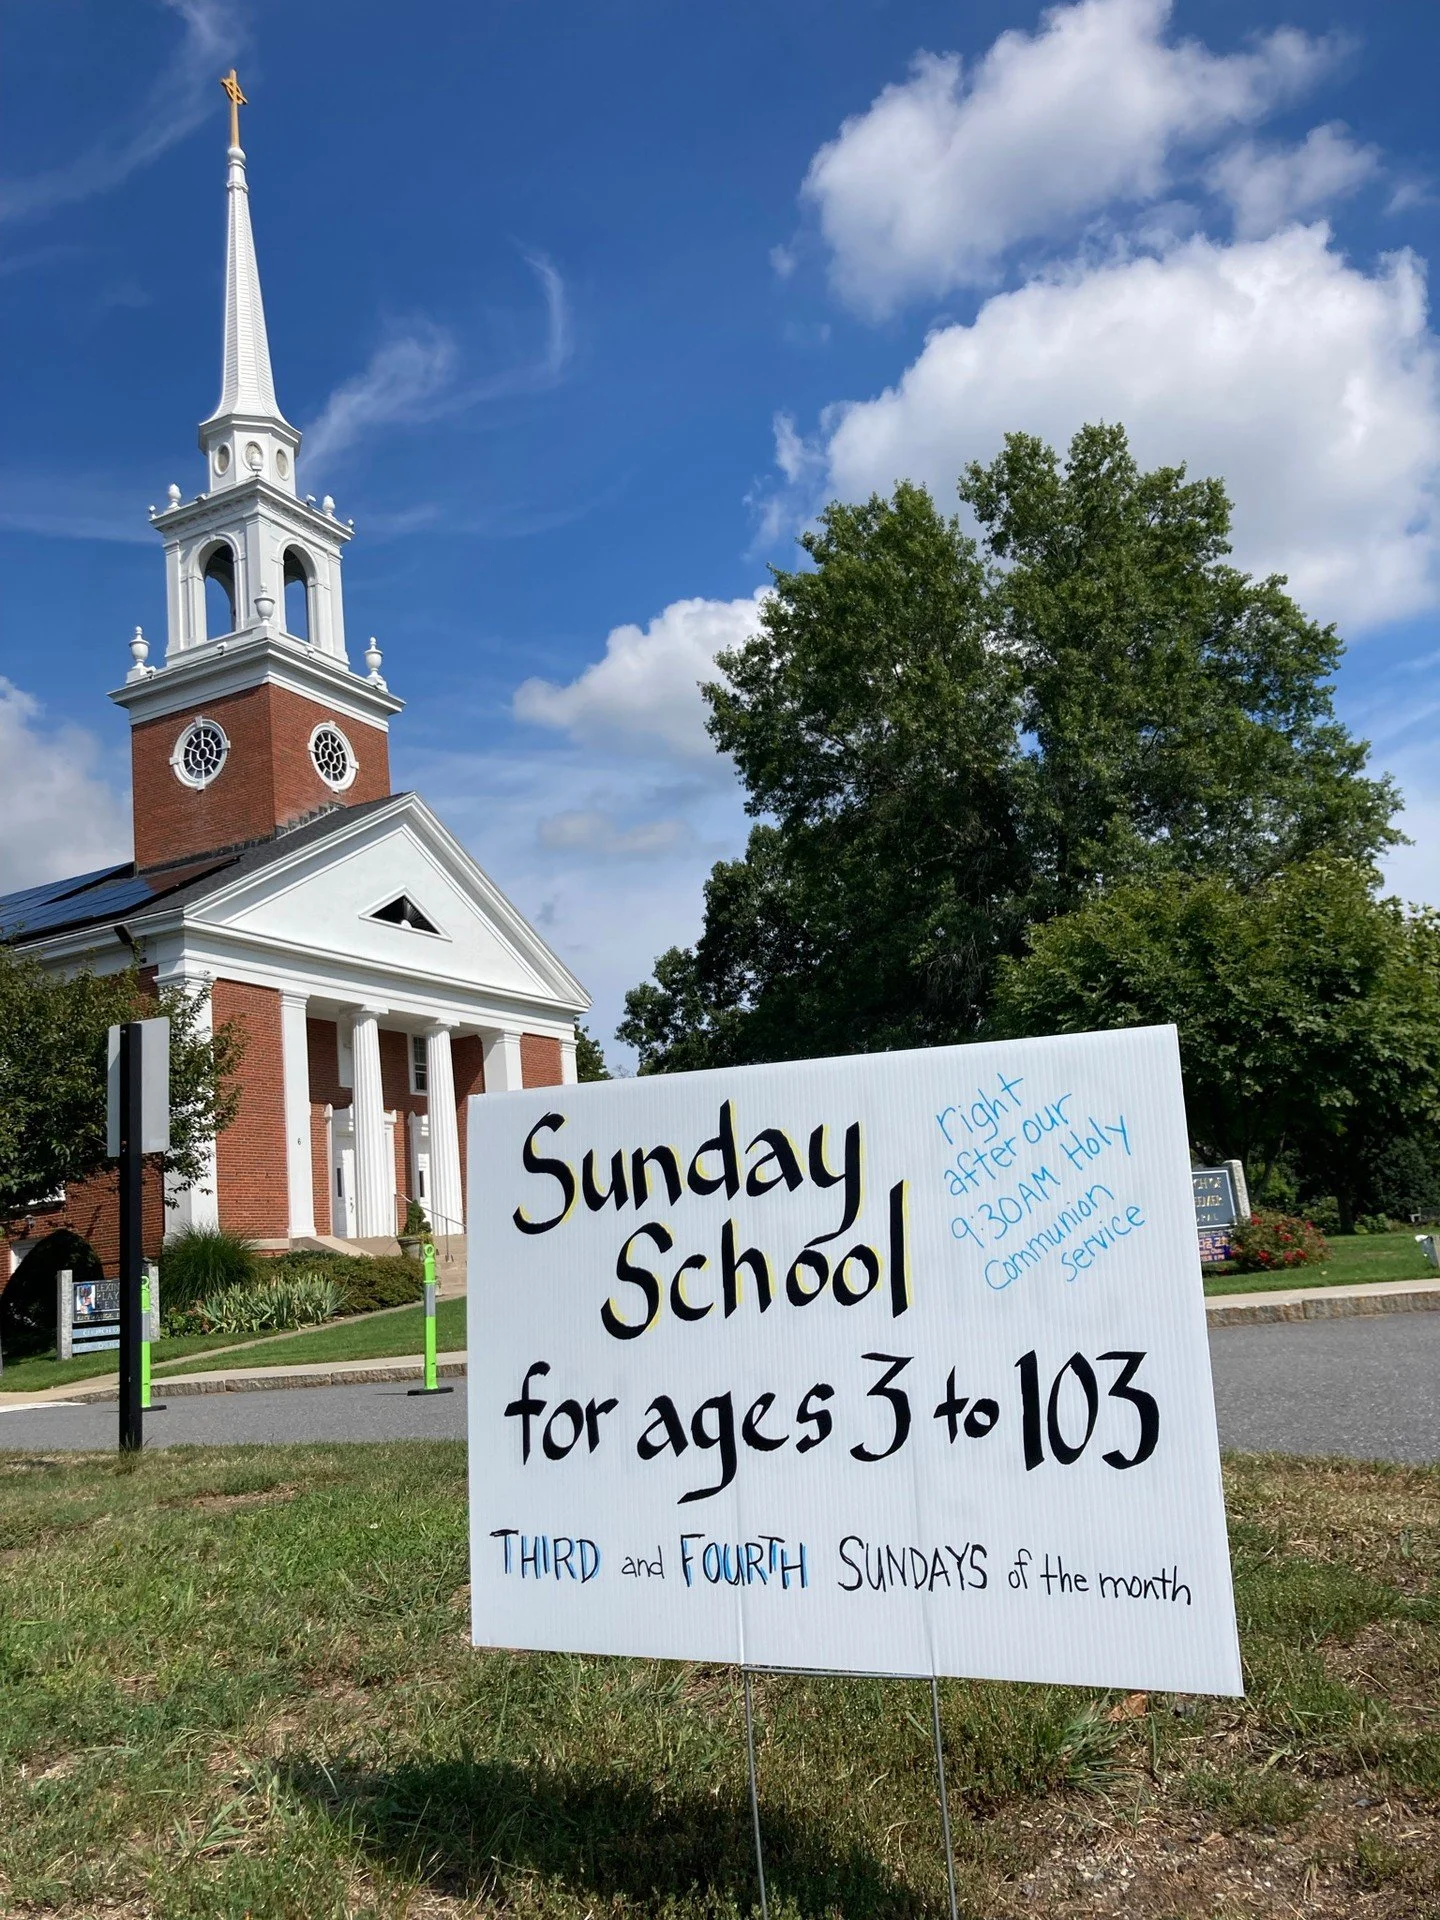 Sunday
School
for ages 3 to 103
THIRD and FOURTH SUNDAYS of the month
right
after our
9:30AM Holy
Communion
service
6